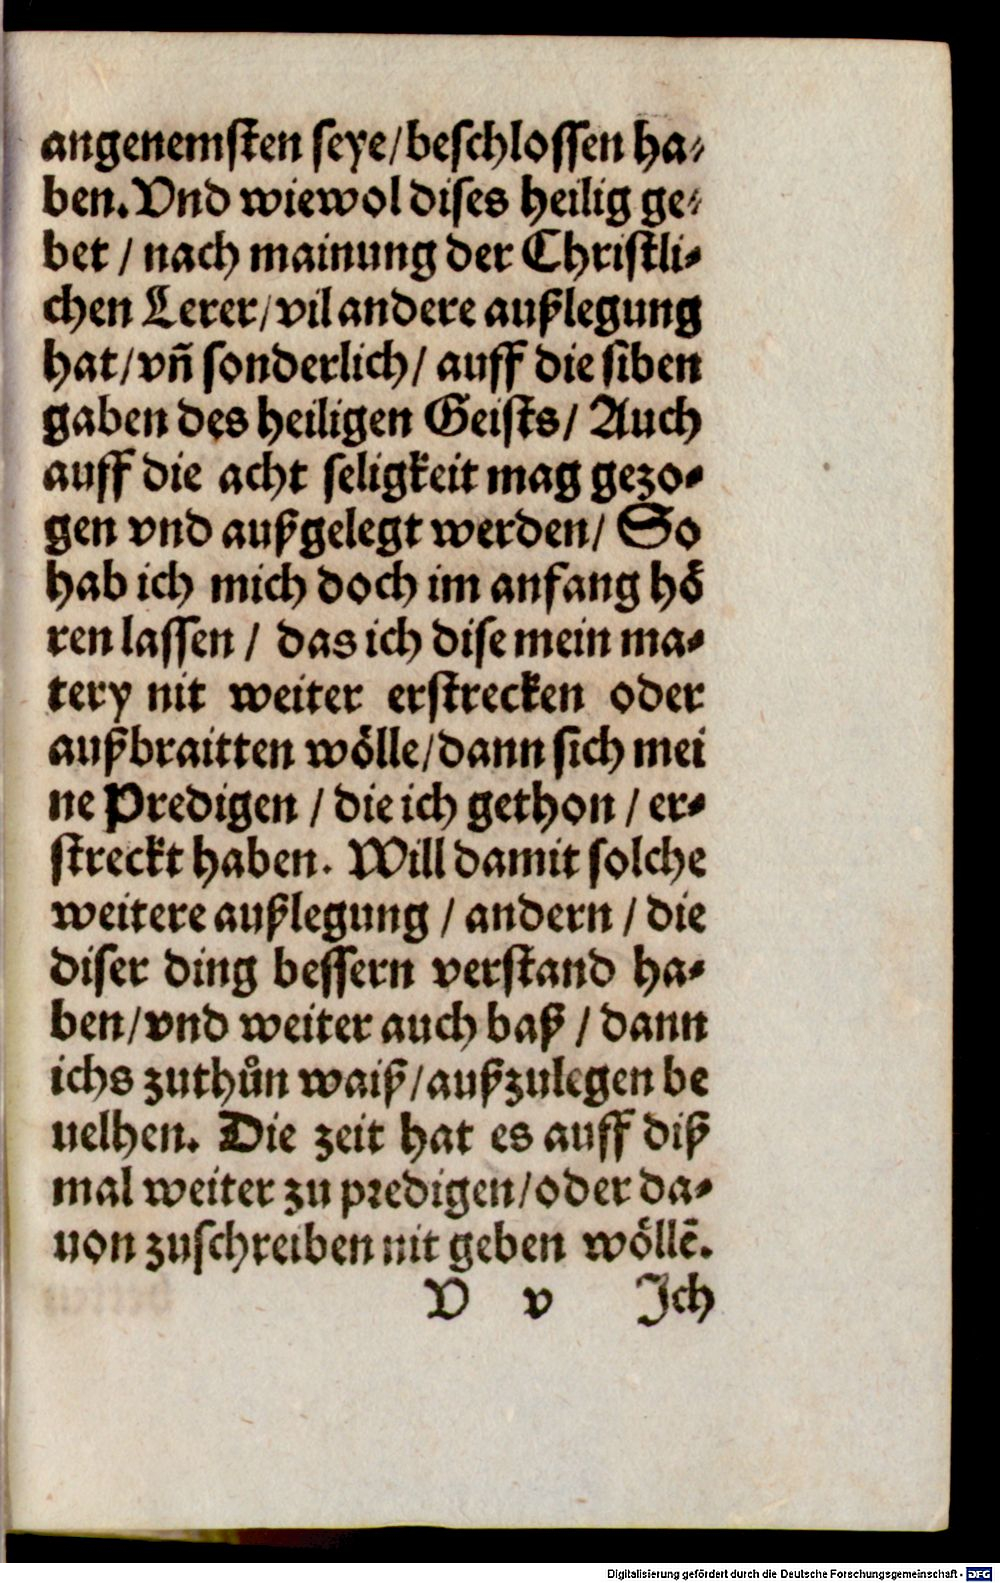 angenemsten seye/beschlossen ha⸗
ben. Vnd wiewol dises heilig ge⸗
bet / nach mainung der Christli⸗
chen Lerer/vil andere außlegung
hat/vñ sonderlich/ auff die siben
gaben des heiligen Geists/ Auch
auff die acht seligkeit mag gezo⸗
gen vnd außgelegt werden/ So
hab ich mich doch im anfang hoͤ
ren lassen / das ich dise mein ma⸗
tery nit weiter erstrecken oder
außbraitten woͤlle/dann sich mei
ne Predigen / die ich gethon / er⸗
streckt haben. Will damit solche
weitere außlegung / andern / die
diser ding bessern verstand ha⸗
ben/vnd weiter auch baß / dann
ichs zuthůn waiß/außzulegen be
uelhen. Die zeit hat es auff diß
mal weiter zu predigen/oder da⸗
uon zuschreiben nit geben woͤllē.
V v Ich
Digitalisierung gefördert durch die Deutsche Forschungsgemeinschaft - DFG